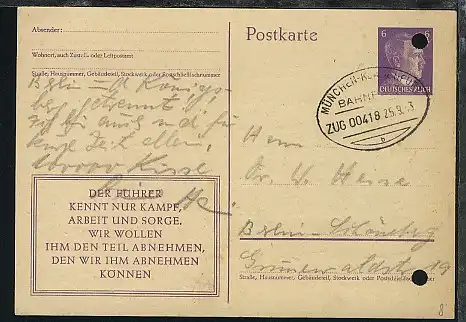 Absender:
Wohnort, auch Zustell- oder Leitpostamt
Straße, Hausnummer, Gebäudeteil, Stockwerk oder Postschließfachnummer
Postkarte
6 6
DEUTSCHES REICH
MÜNCHEN-
BAHNPOST
ZUG 00418 25.9.3
b
Berlin – Königs-
berg, getrennt
auch
kurze Zeit allein,
Küsse
DER FÜHRER
KENNT NUR KAMPF,
ARBEIT UND SORGE.
WIR WOLLEN
IHM DEN TEIL ABNEHMEN,
DEN WIR IHM ABNEHMEN
KÖNNEN
Herrn
Dr. W. Heise
Berlin – Schöneberg
Grunewaldstr. 19
Straße, Hausnummer, Gebäudeteil, Stockwerk oder Postschließfachnummer
8